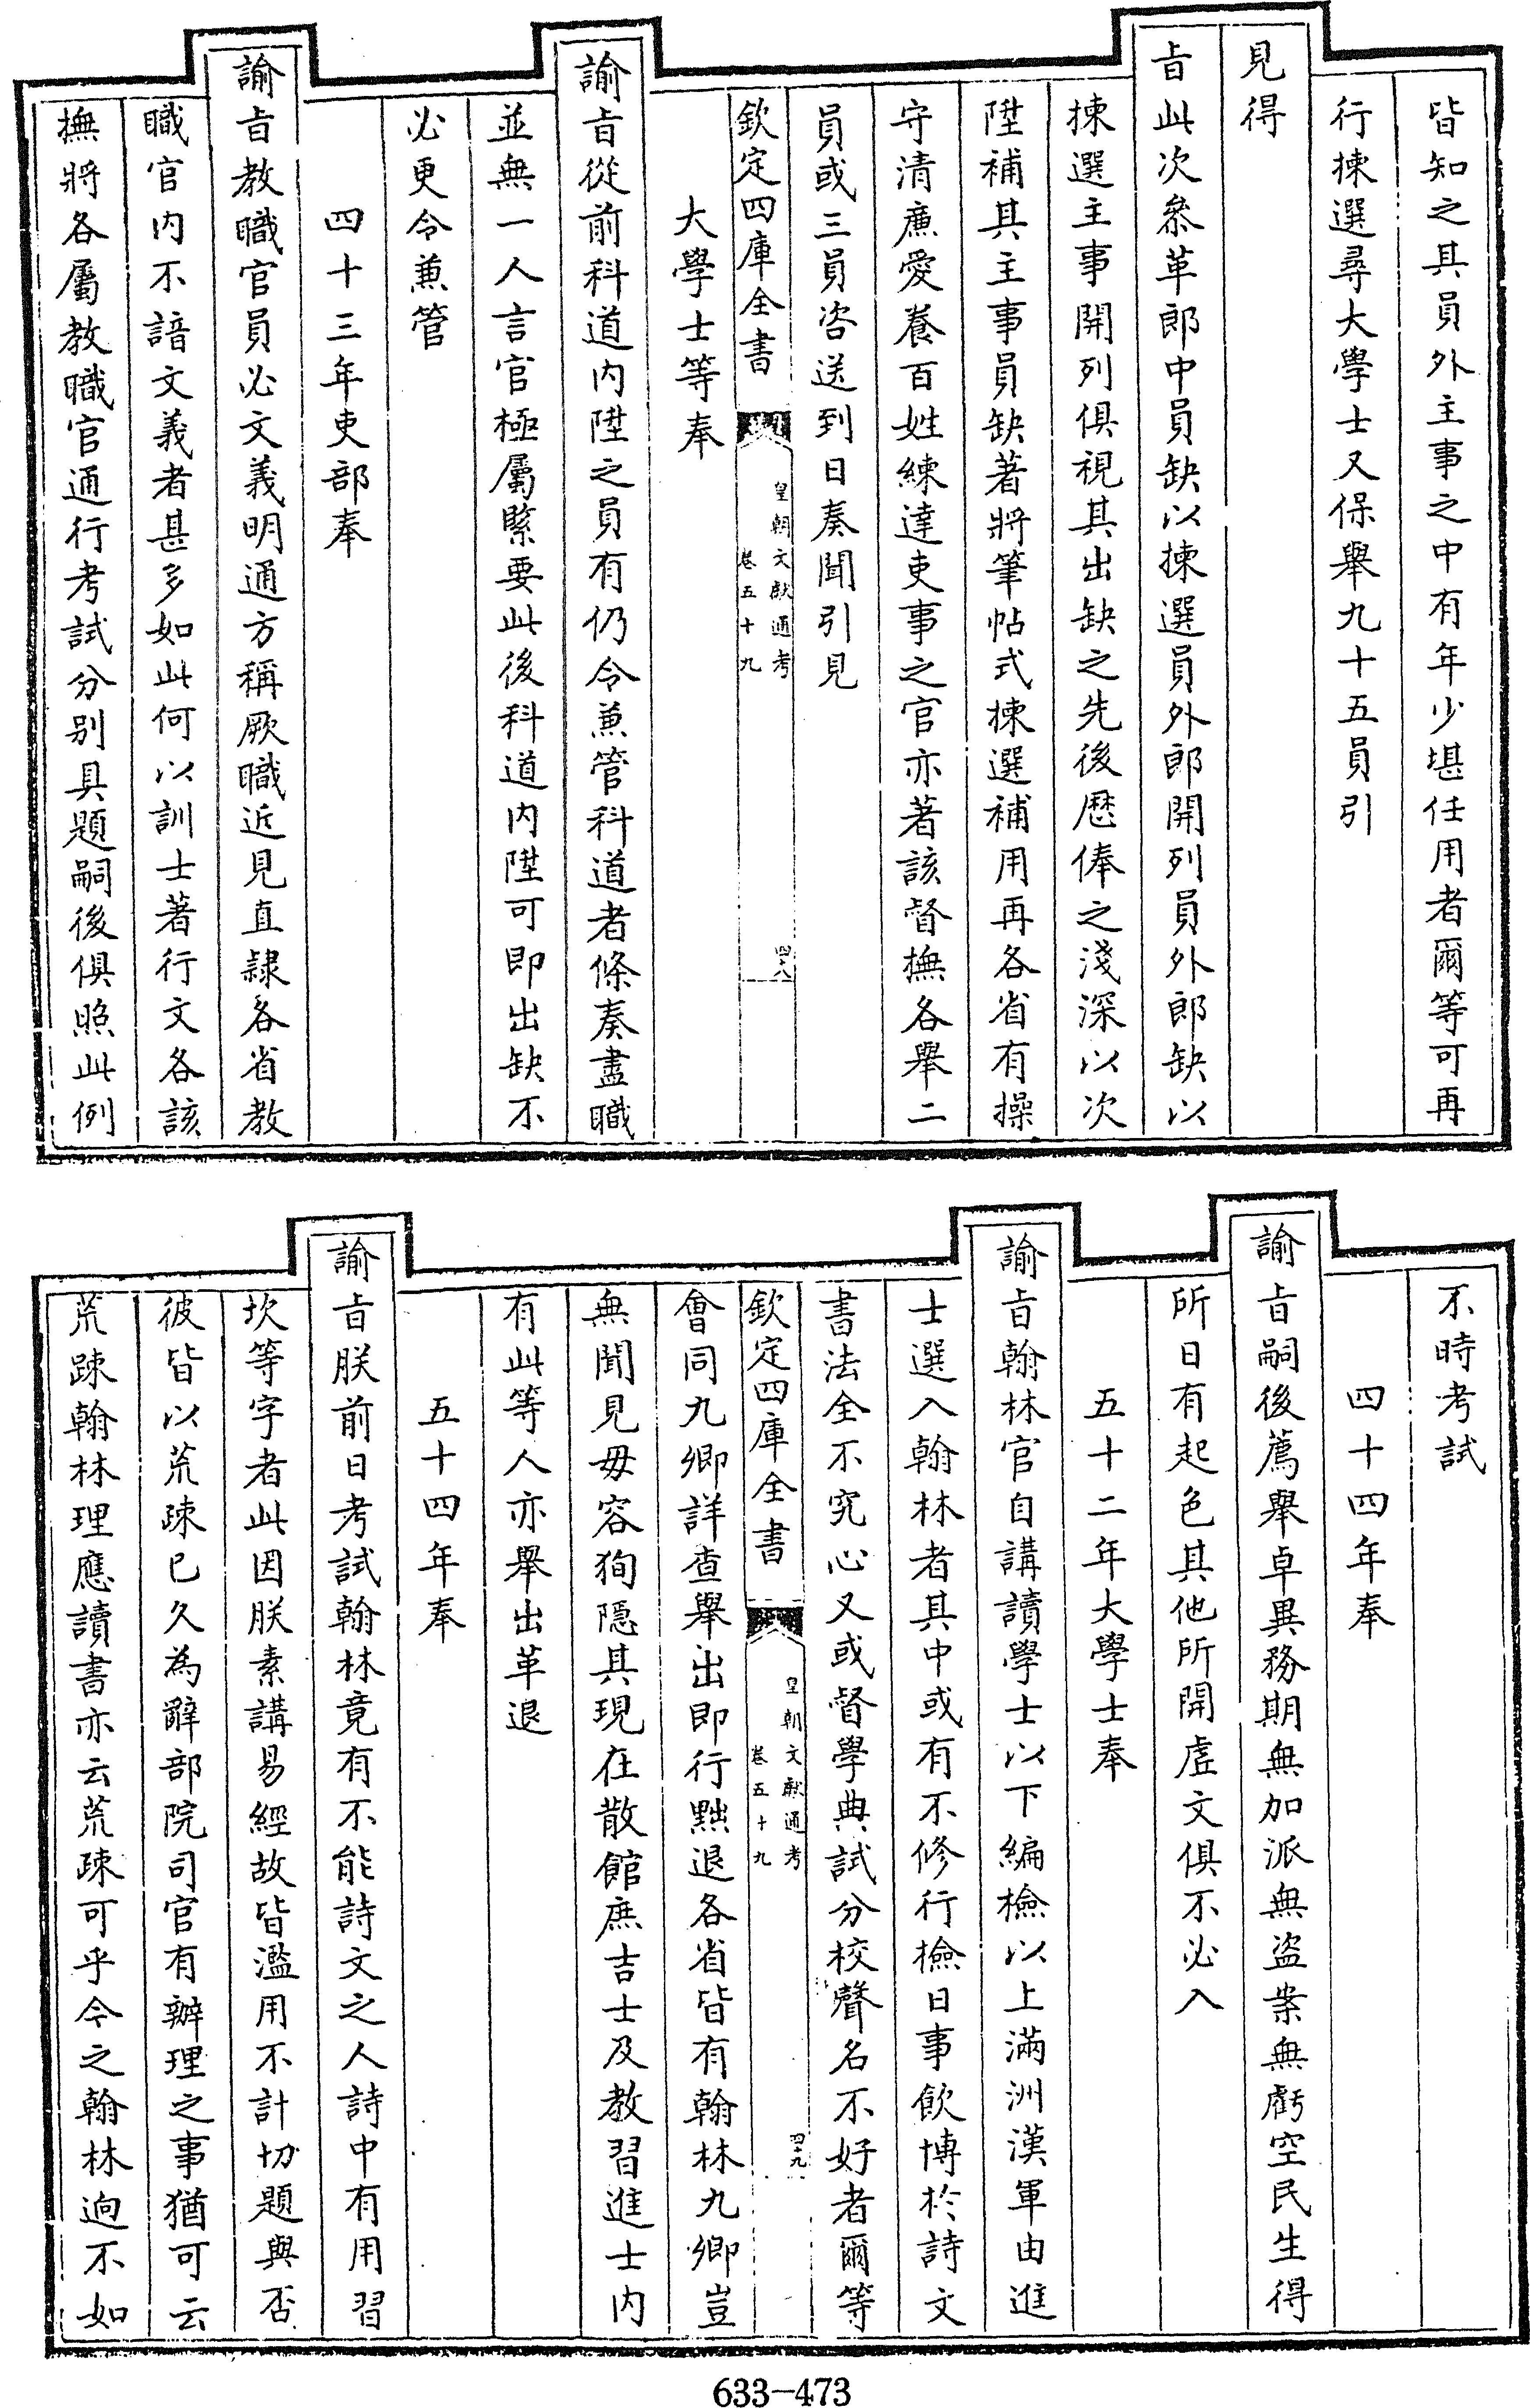 皆知之其員外主事之中有年少堪任用者爾等可再
行揀選尋大學士又保舉九十五員引
見得
㫖此次叅革郎中員缺以揀選員外郎開列員外郎缺以
揀選主事開列俱視其出缺之先後歴俸之淺深以次
陞補其主事員缺著將筆帖式揀選補用再各省有操
守清㢘愛養百姓練達吏事之官亦著該督撫各舉二
員或三員咨送到日奏聞引見
欽定四庫全書
皇朝文獻通考
卷五十九
四十八
大學士等奉
諭㫖從前科道内陞之員有仍令兼管科道者條奏盡職
並無一人言官極屬緊要此後科道内陞可即出缺不
必更令兼管
四十三年吏部奉
諭㫖教職官員必文義明通方稱厥職近見直隸各省教
職官内不諳文義者甚多如此何以訓士著行文各該
撫將各屬教職官通行考試分别具題嗣後俱照此例
不時考試
四十四年奉
諭㫖嗣後薦舉卓異務期無加派無盜案無虧空民生得
所日有起色其他所開虛文俱不必入
五十二年大學士奉
諭㫖翰林官自講讀學士以下編檢以上滿洲漢軍由進
士選入翰林者其中或有不修行檢日事飲博於詩文
書法全不究心又或督學典試分校聲名不好者爾等
欽定四庫全書
皇朝文獻通考
卷五十九
四十九
會同九卿詳查舉出即行黜退各省皆有翰林九卿豈
無聞見毋容狥隱其現在散館庶吉士及教習進士内
有此等人亦舉出革退
五十四年奉
諭㫖朕前日考試翰林竟有不能詩文之人詩中有用習
坎等字者此因朕素講易經故皆濫用不計切題與否
彼皆以荒疎已久為辭部院司官有辦理之事猶可云
荒疎翰林理應讀書亦云荒疎可乎今之翰林逈不如
633-473